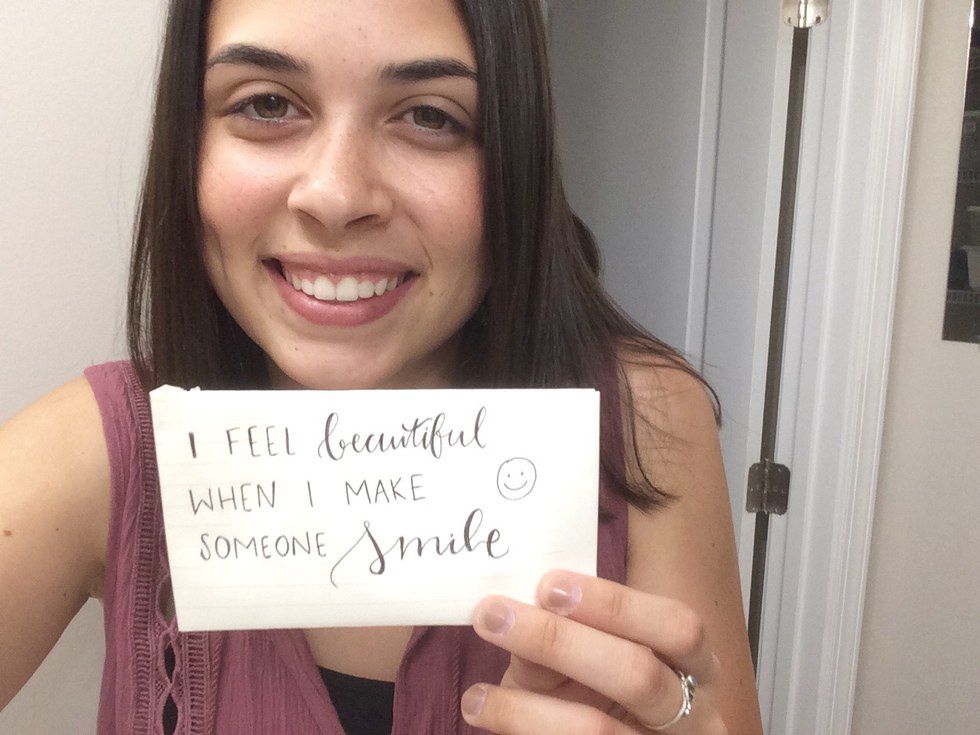 I FEEL beautiful
WHEN I MAKE
SOMEONE smile